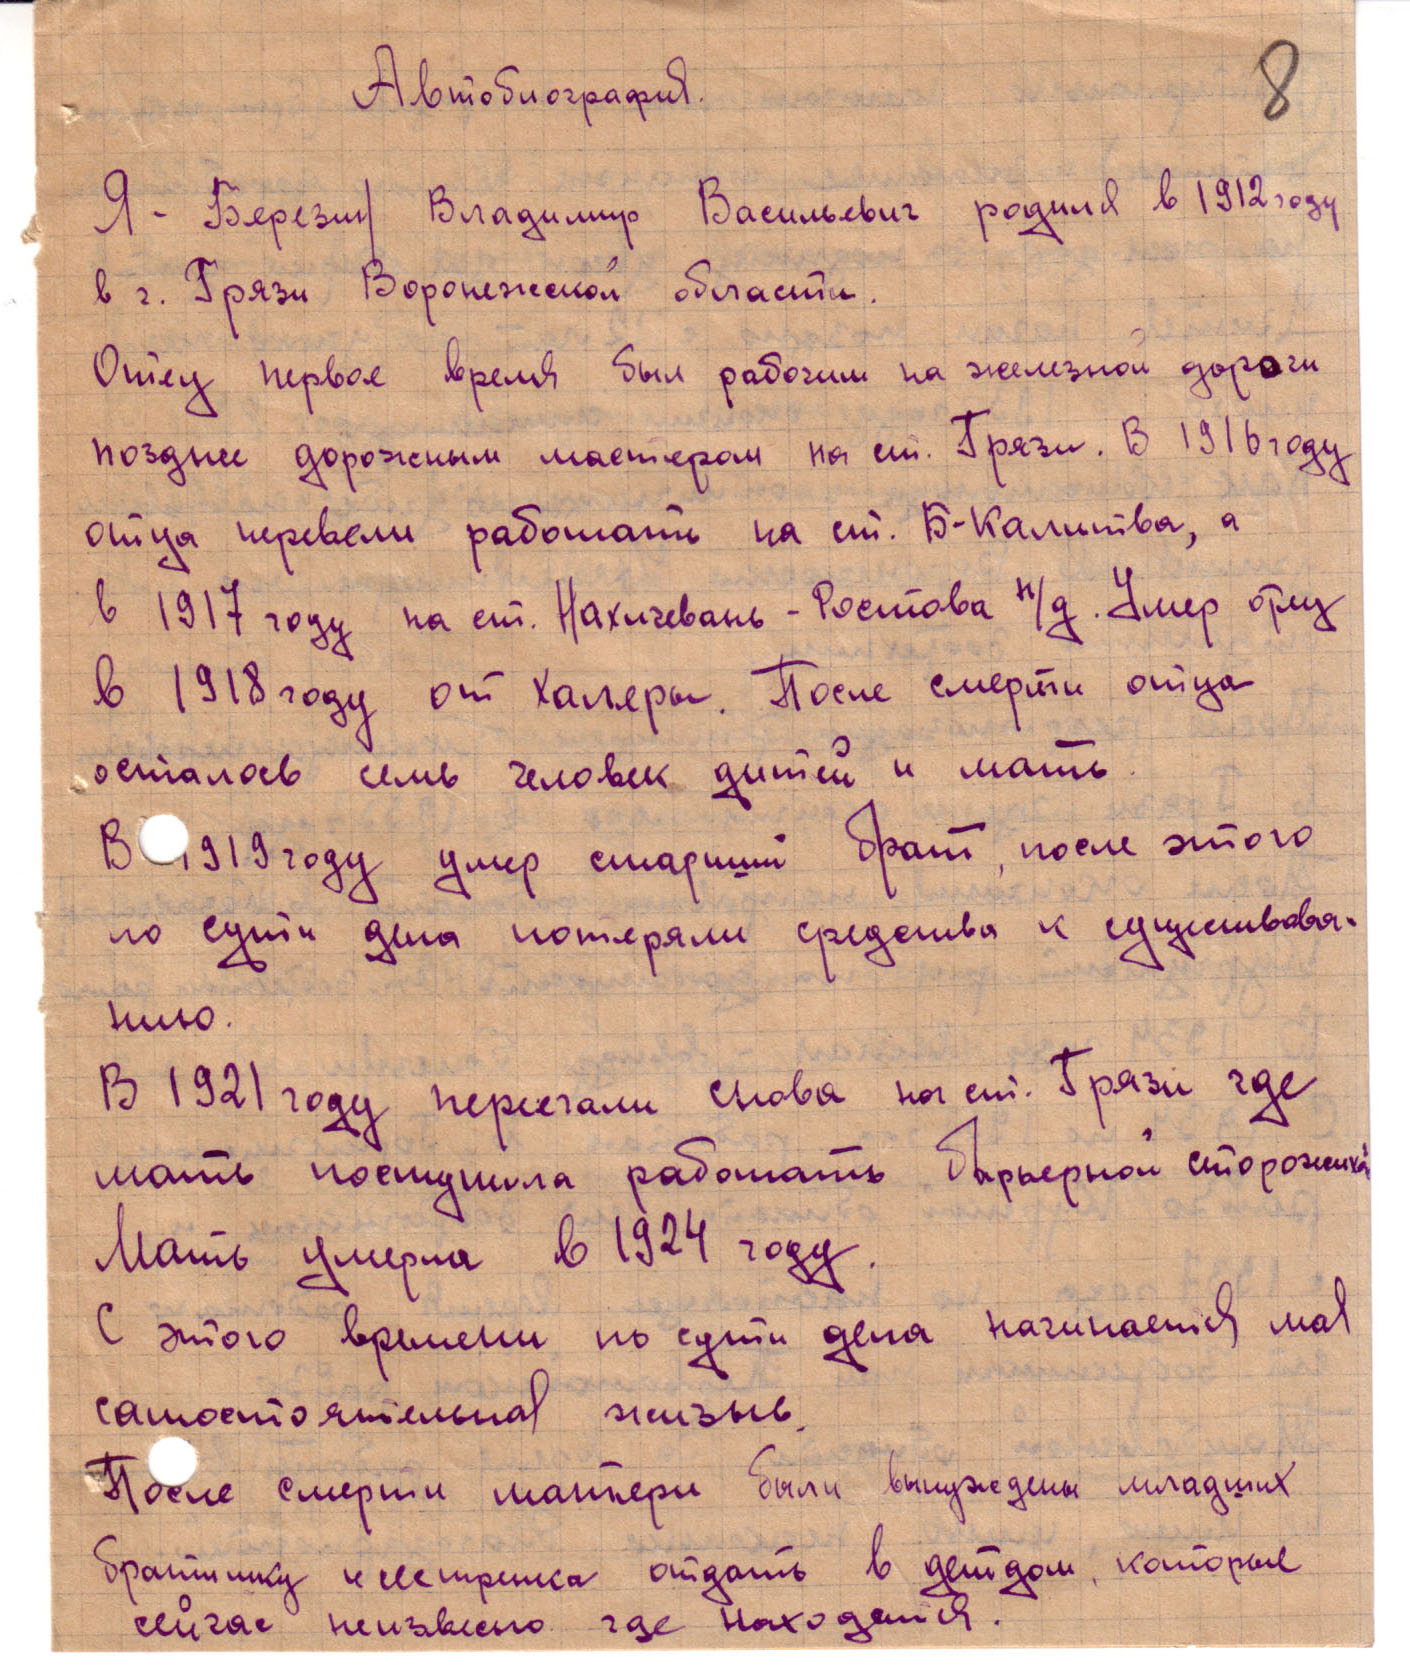 Автобиография.
8
Я - Березин Владимир Васильевич родился в 1912 году
в г. Грязи Воронежской области.
Отец первое время был рабочим на железной дороги
позднее дорожным мастером на ст. Грязи. В 1916 году
отца перевели работать на ст. Б-Калитва, а
в 1917 году на ст. Нахичевань - Ростова н/д. Умер отец
в 1918 году от халеры. После смерти отца
осталось семь человек дитей и мать.
В 1919 году умер старший брат, после этого
по сути дела потеряли средства к существова-
нию.
В 1921 году переехали снова на ст. Грязи где
мать поступила работать барьерной сторожихой
Мать умерла в 1924 году.
С этого времени по сути дела начинается моя
самостоятельная жизнь.
После смерти матери были вынуждены младших
братишку и сестренка отдать в детдом, которые
сейчас неизвесно где находятся.